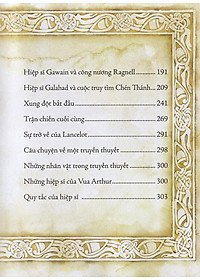 Hiệp sĩ Gawain và công nương Ragnell ........... 191
Hiệp sĩ Galahad và cuộc truy tìm Chén Thánh... 209
Xung đột bắt đầu ........... 241
Trận chiến cuối cùng ........... 269
Sự trở về của Lancelot ........... 291
Câu chuyện về một truyền thuyết ........... 298
Những nhân vật trong truyền thuyết ........... 300
Những hiệp sĩ của Vua Arthur ........... 300
Quy tắc của hiệp sĩ ........... 303